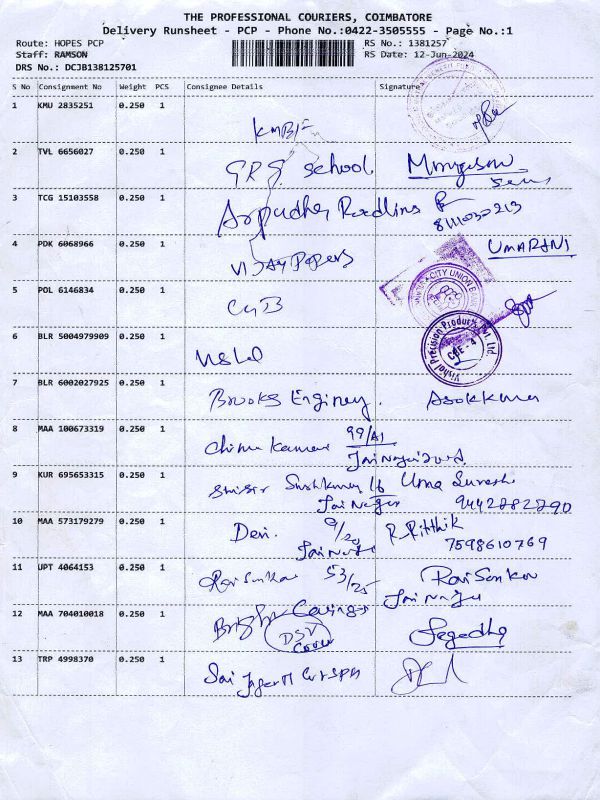 THE PROFESSIONAL COURIERS, COIMBATORE
Delivery Runsheet - PCP - Phone No.:0422-3505555 - Page No.:1
Route: HOPES PCP
Staff: RAMSON
DRS No.: DCJB138125701
RS No.: 1381257
RS Date: 12-Jun-2024
S No Consignment No Weight PCS Consignee Details Signature
1 KMU 2835251 0.250 1
KMBF
2 TVL 6656027 0.250 1
GRG School
3 TCG 15103558 0.250 1
8111030213
4 PDK 6068966 0.250 1
VIJAY Papers UMARANI
5 POL 6146834 0.250 1
CUB
CITY UNION BANK
6 BLR 5004979909 0.250 1
Vishal Precision Products Pvt. Ltd.
CBE - 4
7 BLR 6002027925 0.250 1
Brooks Enginey. Asokkumar
8 MAA 100673319 0.250 1
99/A1
9 KUR 695653315 0.250 1
16 Uma Suresh
Jai Nagar 9442282290
10 MAA 573179279 0.250 1
Devi. 9/20 R. Ritthik
Jai Nagar 7598610769
11 UPT 4064153 0.250 1
Ravi Sankar 53/25 Ravi Sankar
Jai Nagar
12 MAA 704010018 0.250 1
Bright
Cover
13 TRP 4998370 0.250 1
Sai